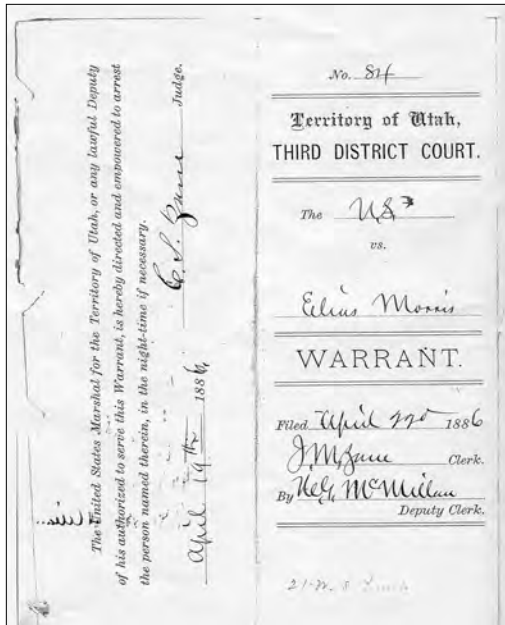 The United States Marshal for the Territory of Utah, or any lawful Deputy
of his authorized to serve this Warrant, is hereby directed and empowered to arrest
the person named therein, in the night-time if necessary.
C. S. Zane Judge.
April 19th 1886,
No. 84
Territory of Utah,
THIRD DISTRICT COURT.
The U.S.
vs.
Elias Morris
WARRANT.
Filed April 22d 1886
J.M. Zane Clerk.
By H.G. McMillan
Deputy Clerk.